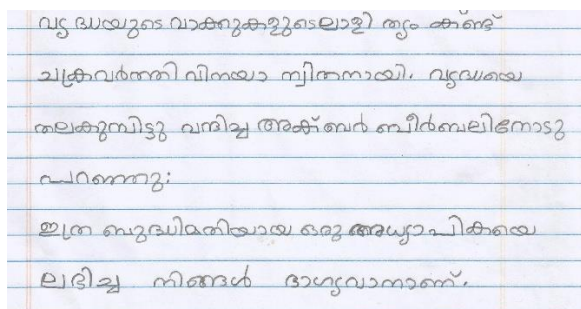 വൃദ്ധയുടെ വാക്കുകളുടെലാളി ത്യം കണ്ട്
ചക്രവർത്തി വിനയാ ന്വിതനായി. വൃദ്ധയെ
തലകുമ്പിട്ടു വന്ദിച്ച അക്ബർ ബീർബലിനോടു
പറഞ്ഞു:
ഇത്ര ബുദ്ധിമതിയായ ഒരു അധ്യാപികയെ
ലഭിച്ച നിങ്ങൾ ഭാഗ്യവാനാണ്.